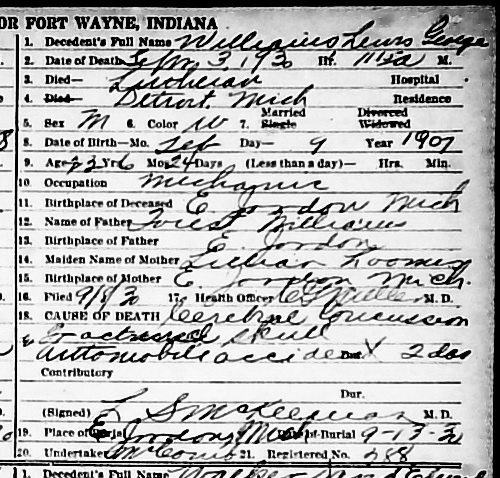 OR FORT WAYNE, INDIANA
1. Decedent's Full Name Williams Lewis George
2. Date of Death Sep 3 1930 Hr. 11:5a M.
3. Died— Lutheran Hospital
4. Died— Detroit Mich Residence
5. Sex M 6. Color W 7. Married Single Divorced Widowed
8. Date of Birth—Mo. Feb Day— 9 Year 1907
9. Age 23 Yrs 6 Mo. 24 Days (Less than a day)— Hrs. Min.
10. Occupation Mechanic
11. Birthplace of Deceased E Jordon Mich
12. Name of Father Williams
13. Birthplace of Father E. Jordon
14. Maiden Name of Mother Lillian Loomis
15. Birthplace of Mother E Jordon Mich.
16. Filed 9/8/30 17. Health Officer M. D.
18. CAUSE OF DEATH Cerebral Concussion
& skull
automobile accident Dur. X 2 das
Contributory
Dur.
(Signed) L S McKeeman M. D.
19. Place of Burial E Jordon, Mich Date of Burial 9-13-30
20. Undertaker McComb 21. Registered No. 288
1. Decedent's Full Name Walker